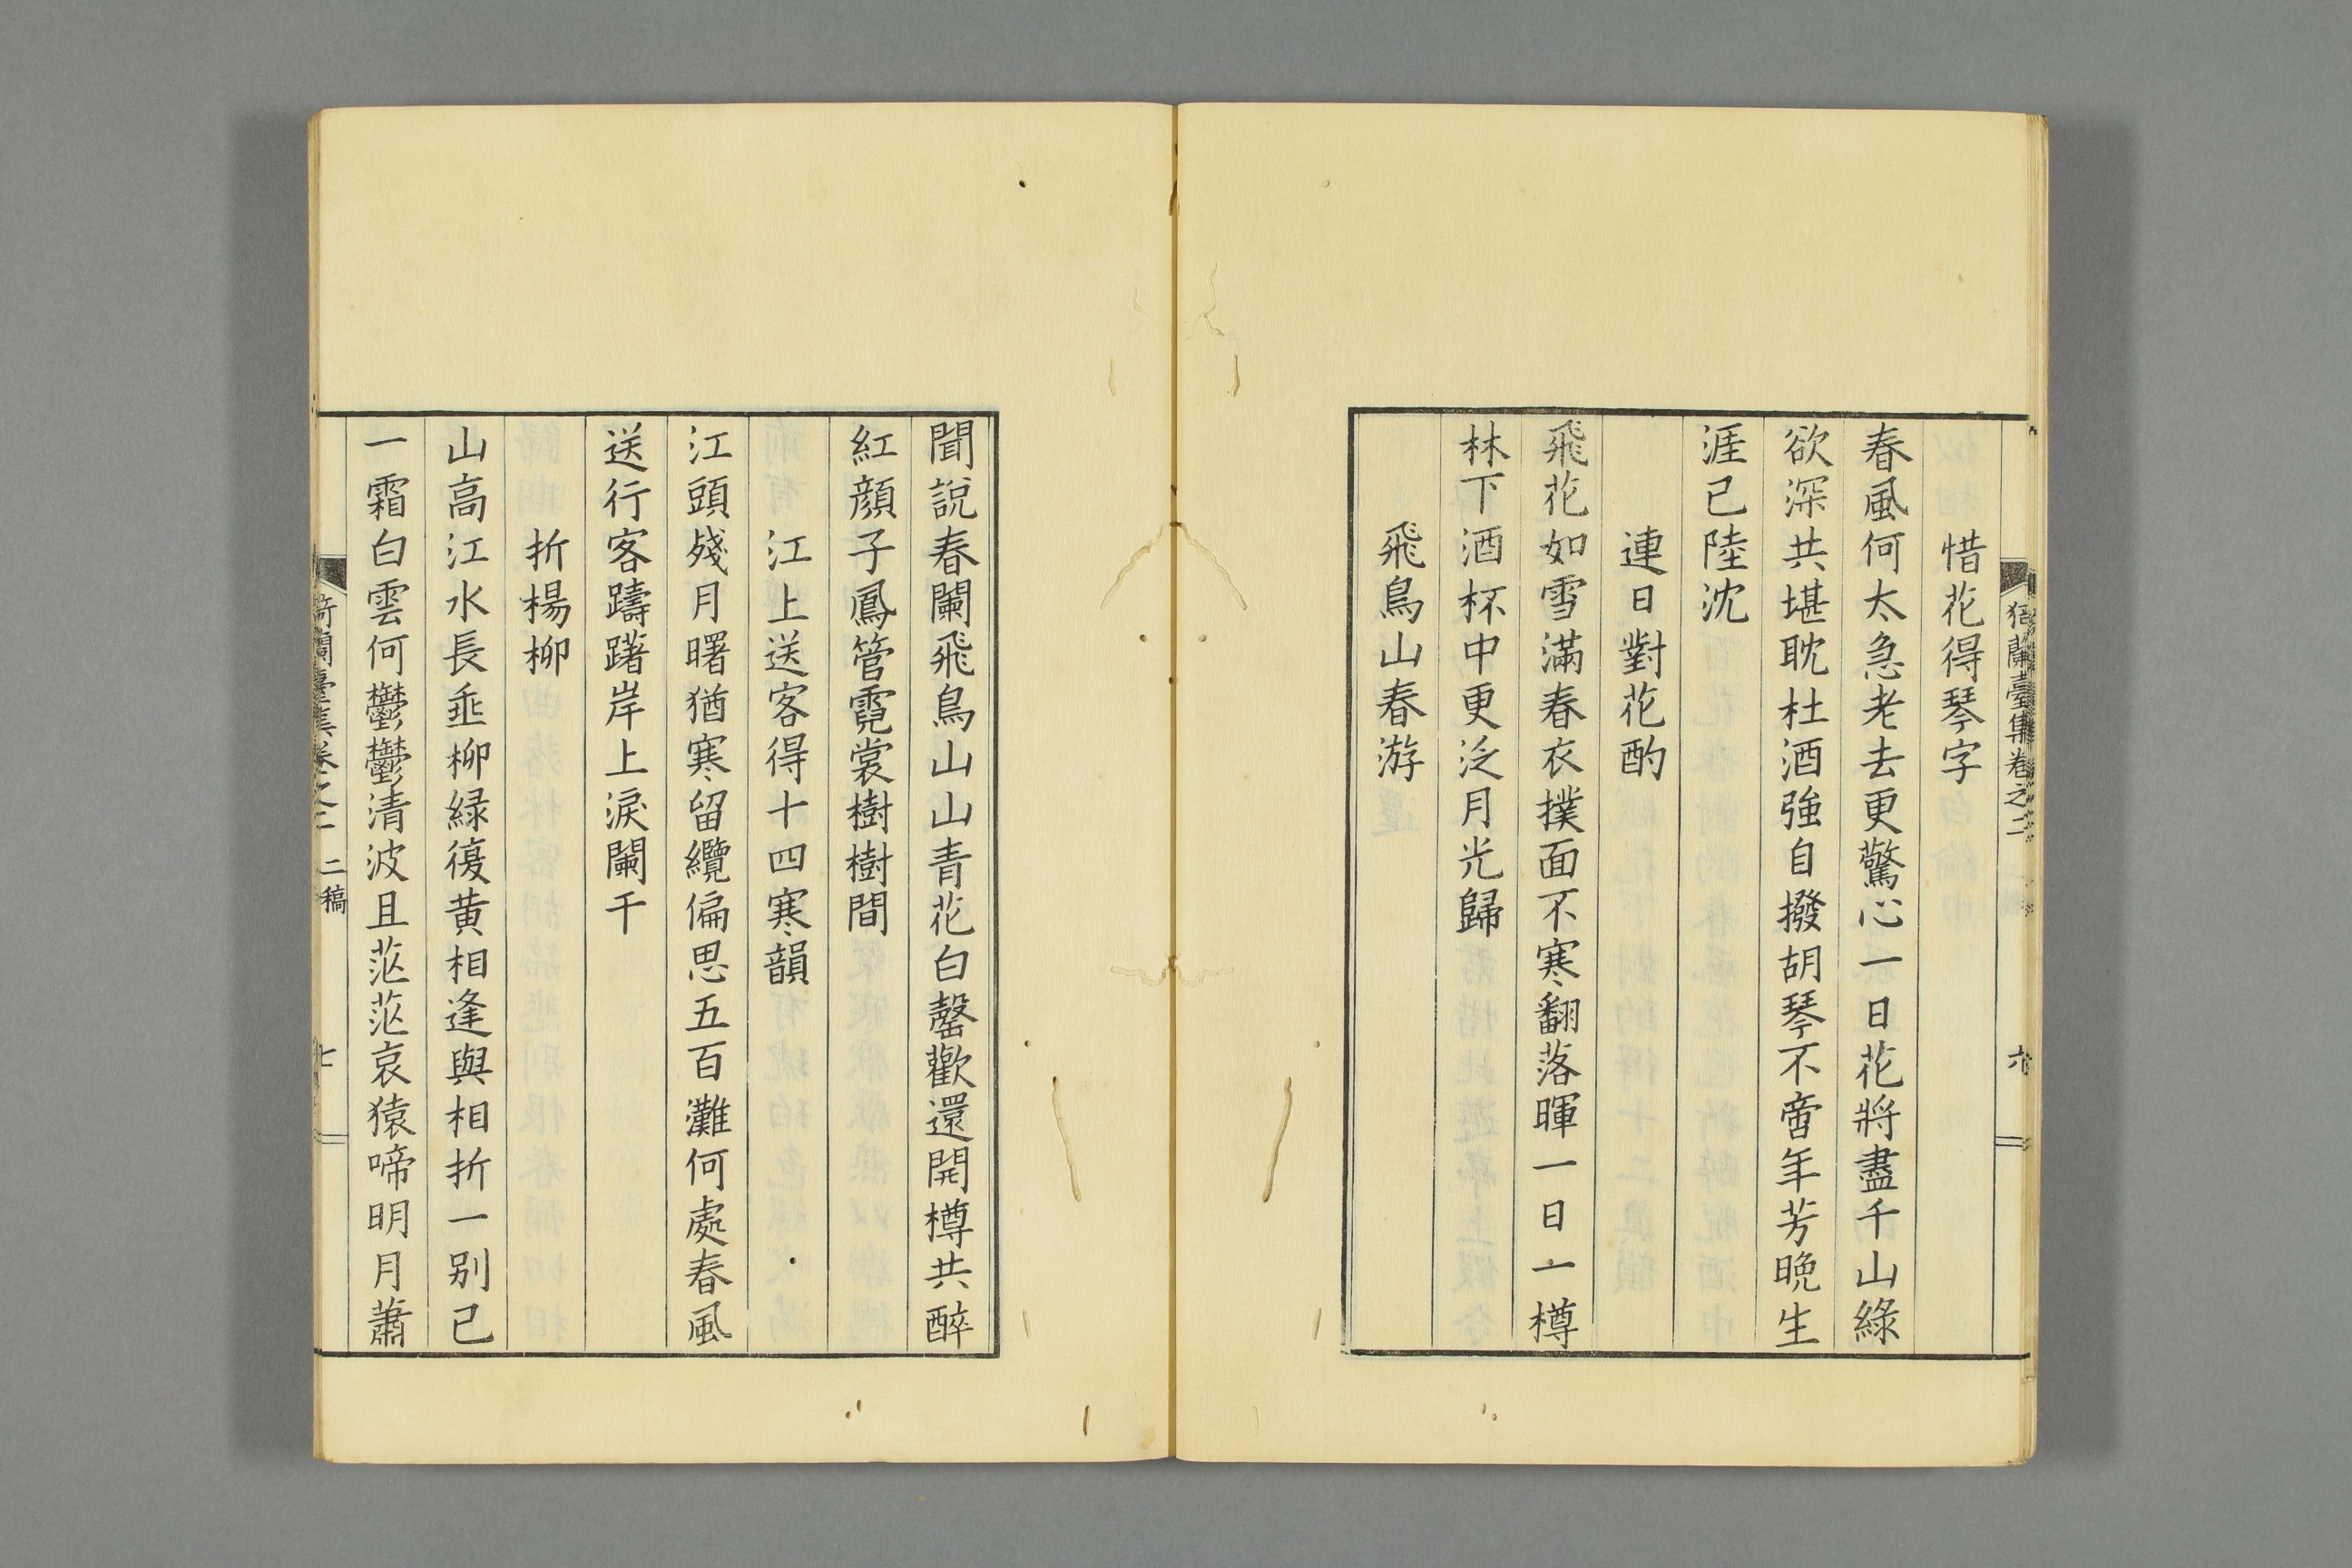 蘭臺集卷之二
六
惜花得琴字
春風何太急老去更驚心一日花將盡千山綠
欲深共堪耽杜酒強自撥胡琴不啻年芳晚生
涯已陸沈
連日對花酌
飛花如雪滿春衣撲面不寒翻落暉一日一樽
林下酒杯中更泛月光歸
飛鳥山春游
聞說春闌飛鳥山山青花白罄歡還開樽共醉
紅顔子鳳管霓裳樹樹間
江上送客得十四寒韻
江頭殘月曙猶寒留纜偏思五百灘何處春風
送行客躊躇岸上淚闌干
折楊柳
山高江水長垂柳緑復黄相逢與相折一别已
一霜白雲何鬱鬱清波且茫茫哀猿啼明月蕭
蘭臺集卷之二 二稿
七